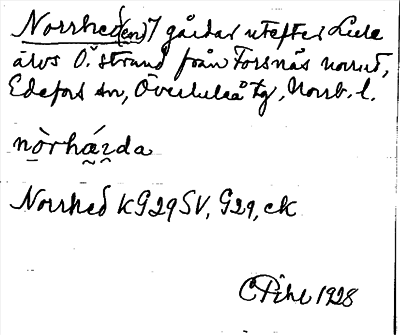 Norrhed(en) 7 gårdar utefter Lule
älvs Ö. strand från Forsnäs norrut,
Edefors sn, Överluleå tg, Norrb. l.
nòrhǽda
Norrhed kG29SV, G29, ek
C Pihl 1928